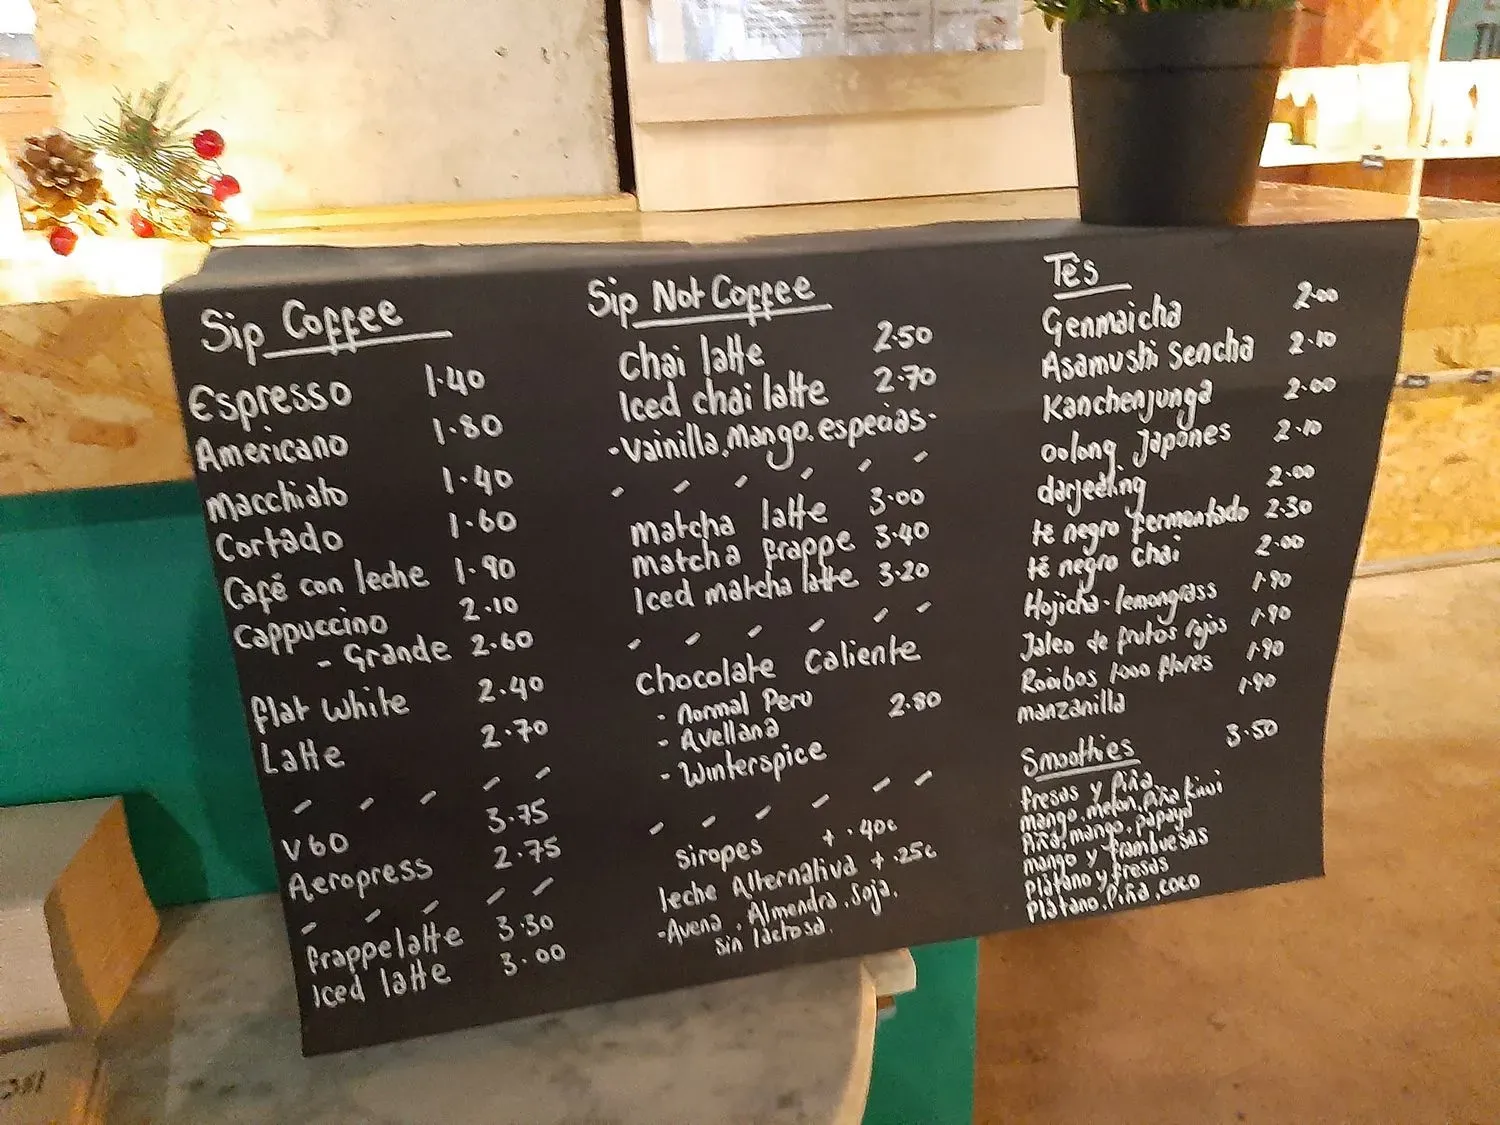 Sip Coffee
Espresso 1.40
Americano 1.80
Macchiato 1.40
Cortado 1.60
Café con leche 1.90
Cappuccino 2.10
- Grande 2.60
flat white 2.40
Latte 2.70
V60 3.75
Aeropress 2.75
frappelatte 3.30
Iced latte 3.00
Sip Not Coffee
Chai latte 2.50
Iced chai latte 2.70
-Vainilla, Mango, especias-
matcha latte 3.00
matcha frappe 3.40
Iced matcha latte 3.20
chocolate Caliente
- Normal Peru 2.80
- Avellana
- Winterspice
siropes + .40c
leche Alternativa + .25c
-Avena, Almendra, Soja,
sin lactosa.
Tés
Genmaicha 2.00
Asamushi Sencha 2.10
Kanchenjunga 2.00
Oolong Japones 2.10
darjeeling 2.00
té negro fermentado 2.30
té negro Chai 2.00
Hojicha-lemongrass 1.90
Jaleo de frutos rojos 1.90
Rooibos 1000 flores 1.90
manzanilla 1.90
Smoothies 3.50
fresas y Piña
Mango, melon, Piña Kiwi
Piña, mango, papaya
mango y frambuesas
Plátano y fresas
Plátano, Piña, coco